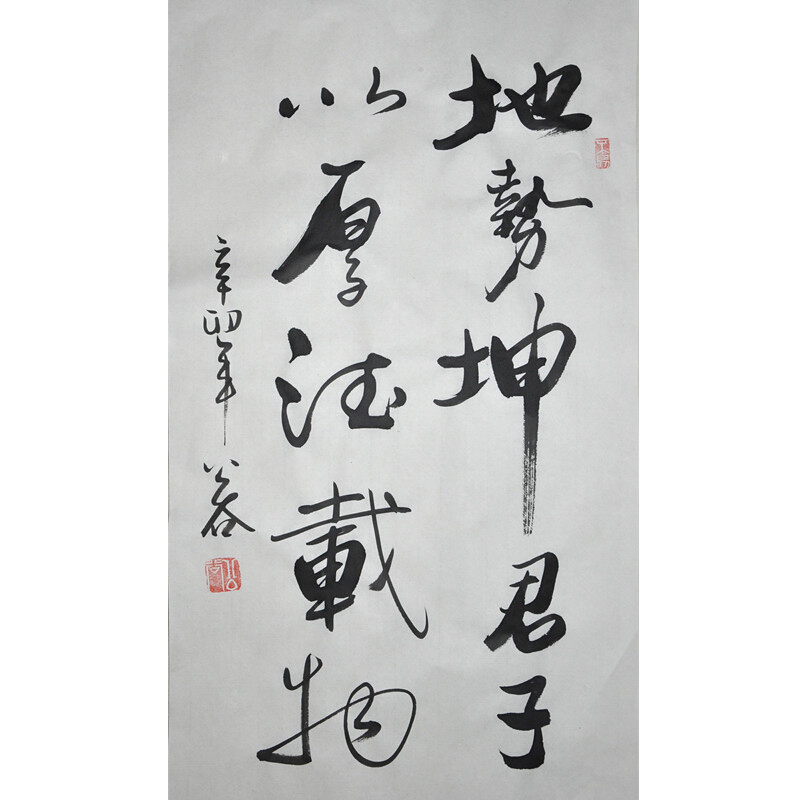 地勢坤君子
以厚德載物
辛卯年